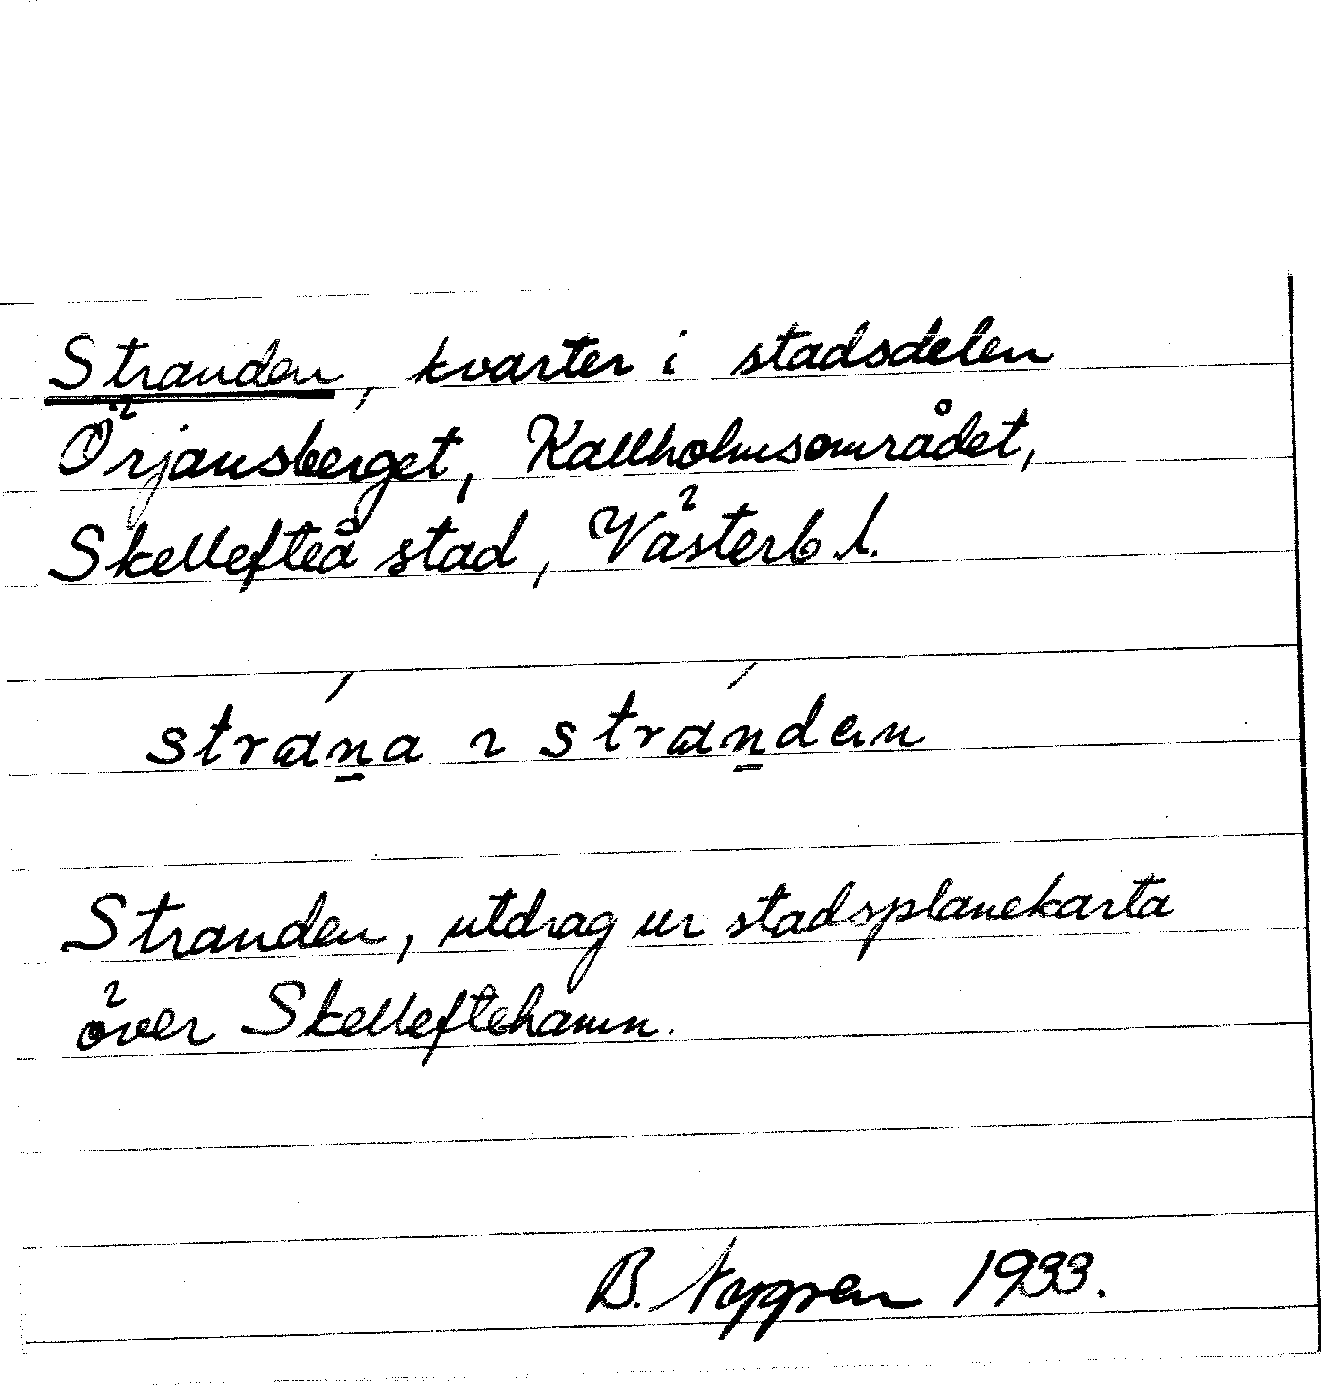 Stranden, kvarter i stadsdelen
Örjansberget, Kallholmsområdet,
Skellefteå stad, Västerb. l.
strán̲a ~ strán̲dan
Stranden, utdrag ur stadsplanekarta
över Skelleftehamn.
B. Nygren 1933.